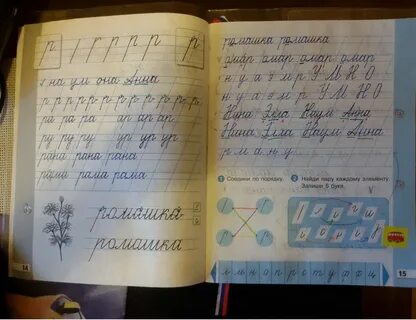 р р р р р р р
на ум она Анна
р р р р р р р р р р р р
ра ра ра ар ар ар
ру ру ру ур ур ур
рана рана рана
рама рама рама
ромашка
ромашка
14
ромашка ромашка
омар омар омар омар
н у а э м р У М Н О
н у а э м р У М Н О
Нина Элла Наум Анна
Нина Элла Наум Анна
р м а н у
1 Соедини по порядку.
2 Найди пару каждому элементу. Запиши 5 букв.
л м н о п р о т у ф ф ц
15